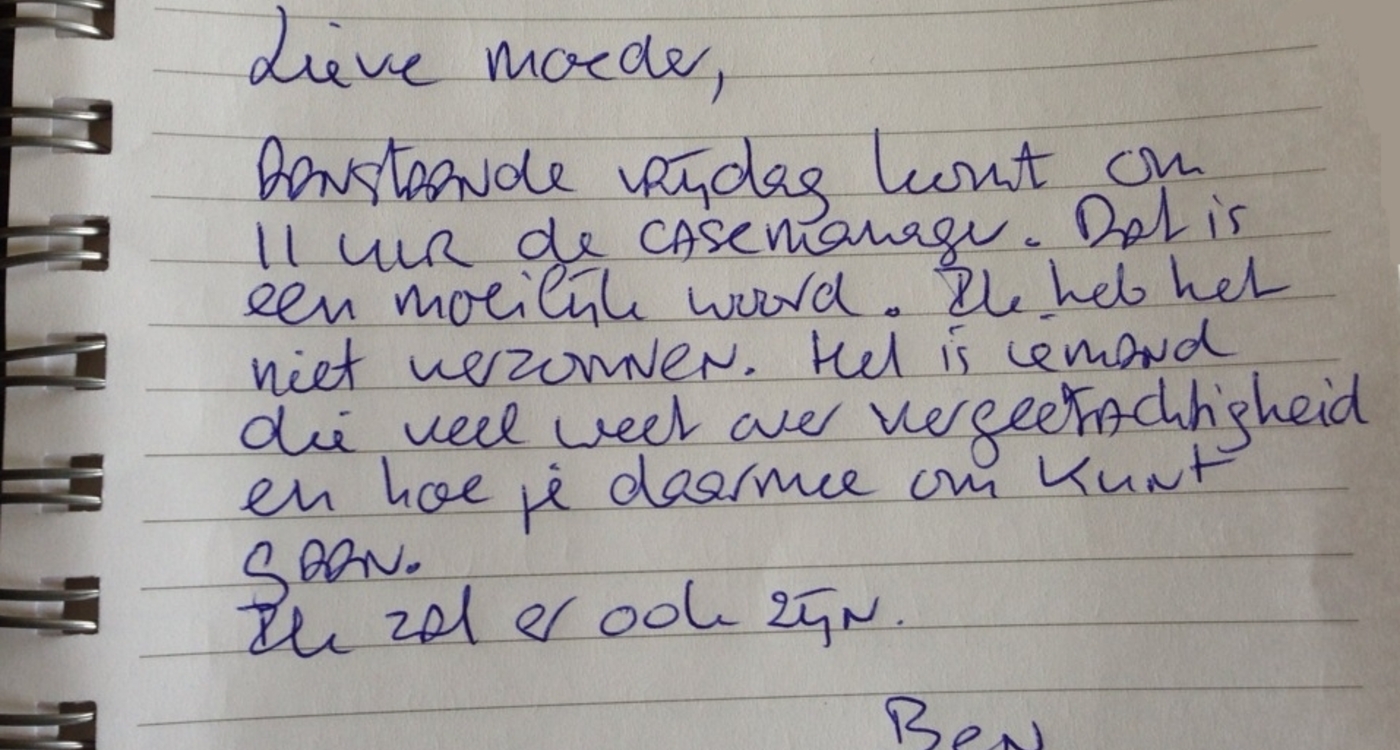 Lieve moeder,
Aanstaande vrijdag komt om
11 uur de casemanager. Dat is
een moeilijk woord. Ik heb het
niet verzonnen. Het is iemand
die veel weet over vergeetachtigheid
en hoe je daarmee om kunt
gaan.
Ik zal er ook zijn.
Ben